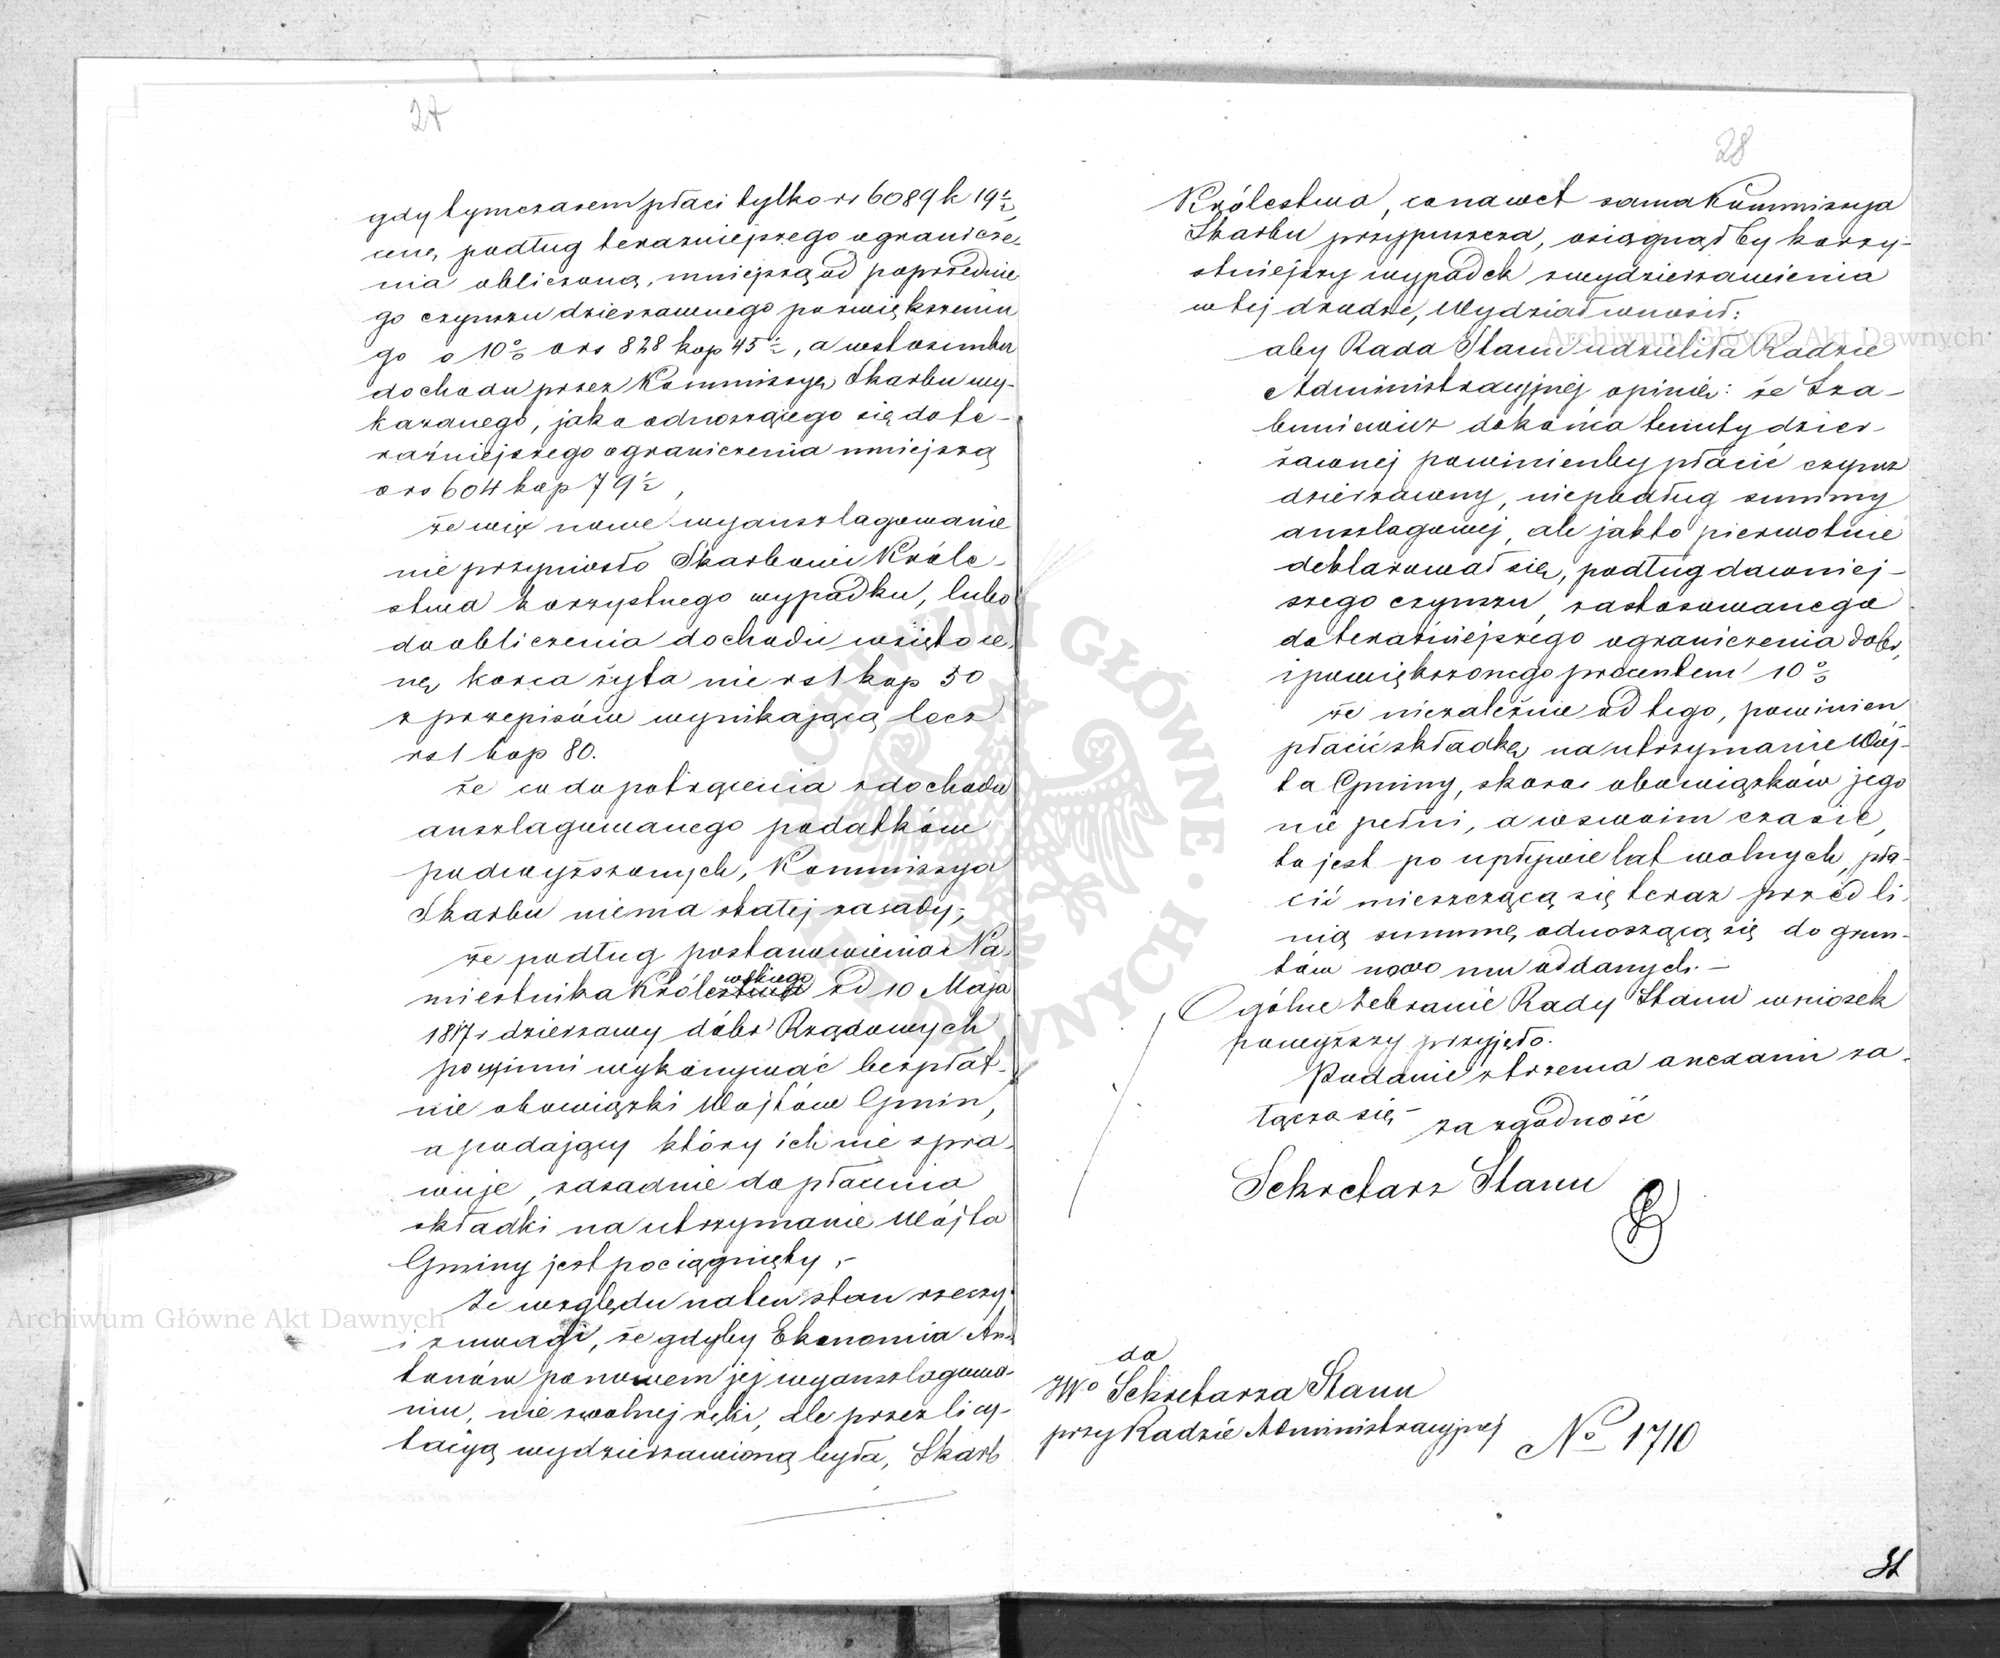 27
gdy tymczasem płaci tylko rs 6089 k 19½,
cenę, podług teraźniejszego ogranicze-
nia obliczoną, mniejszą od poprzednie
go czynszu dzierżawnego powiększenia
go o 10% o rs 828 kop 45½, a w stosunku
dochodu przez Kommissyę Skarbu wy-
kazanego, jako odnoszącego się do te-
raźniejszego ograniczenia mniejszą
o rs 604 kop 79½,
że więc nowe wyanszlagowanie
nie przyniosło Skarbowi Króle-
stwa korzystnego wypadku, lubo
do obliczenia dochodu wzięto ce-
nę korca żyta nie rs 1 kop 50
z przepisów wynikającą lecz
rs 1 kop 80.
że co do potrącenia z dochodu
anszlagowanego podatków
podwyższonych, Kommissya
Skarbu niema stałej zasady;
że podług postanowienia Na-
wskiego
miestnika Królestwa od 10 Maja
1817 r dzierżawcy dóbr Rządowych
powinni wykonywać bezpłat-
nie obowiązki Wójtów Gmin,
a podający który ich nie spra-
wuje, zasadnie do płacenia
składki na utrzymanie Wójta
Gminy jest pociągnięty,-
Ze względu na ten stan rzeczy
i z uwagi, że gdyby Ekonomia An-
tonów po nowem jej wyanszlagowa-
niu, nie z wolnej ręki, ale przez licy-
tacyą wydzierżawioną była, Skarb
28
Królestwa, co nawet sama Kommissya
Skarbu przypuszcza, osiągnąłby korzy-
stniejszy wypadek z wydzierżawienia
w tej drodze, Wydział wnosił:
aby Rada Stanu udzieliła Radzie
Administracyjnej opinię: że Sza-
buniewicz do końca tenuty dzier-
żawnej powinienby płacić czynsz
dzierżawny, nie podług summy
anszlagowej, ale jak to pierwotnie
deklarował się, podług dawniej-
szego czynszu, zastosowanego
do teraźniejszego ograniczenia dóbr,
i powiększonego procentem 10%
że niezależnie od tego, powinien
płacić składkę na utrzymanie Wój-
ta Gminy, skoro obowiązków jego
nie pełni, a w swoim czasie,
to jest po upływie lat wolnych, pła-
cić mieszczącą się teraz przed li-
nią summę, odnoszącą się do grun-
tów nowo mu oddanych.-
Ogólne Zebranie Rady Stanu wniosek
powyższy przyjęło.
Podanie z trzema anexami za-
łącza się - za zgodność
Sekretarz Stanu
do
JWo Sekretarza Stanu
przy Radzie Administracyjnej
No 1710
Archiwum Główne Akt Dawnych
Archiwum Główne Akt Dawnych
ARCHIWUM GŁÓWNE AKT DAWNYCH